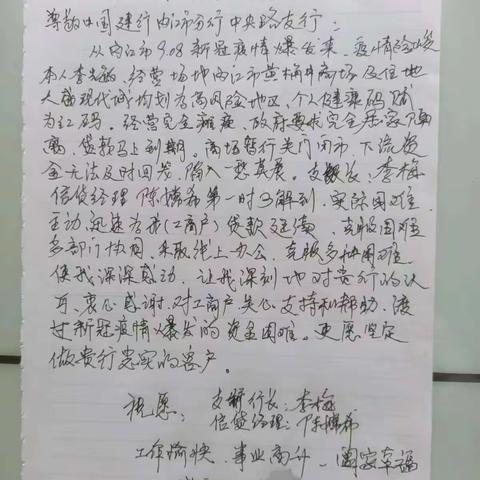 尊敬中国建行内江市分行中央路支行：
从内江市9.08新冠疫情爆发来，疫情险峻
本人李，经营场地内江市黄桷井商场及住地
大自然现代城均划为高风险地区，个人健康码赋
为红码。经营完全瘫痪，政府要求完全居家隔
离，贷款马上到期。商场暂行关门闭市，下流资
金无法及时回笼，陷入一愁莫展。支行长：李梅
信贷经理陈第一时间了解到，实际困难
主动，迅速为我（工商户）贷款延续，克服困难
多部门协同，采取线上办公，克服多种困难
使我深深感动，让我深刻地对贵行的认
可，衷心感谢，对工商户关心支持和帮助，渡
过新冠疫情爆发的资金困难。更愿坚定
做贵行忠实的客户。
祝愿：支行行长：李梅
信贷经理：陈希
工作愉快、事业高升、阖家幸福